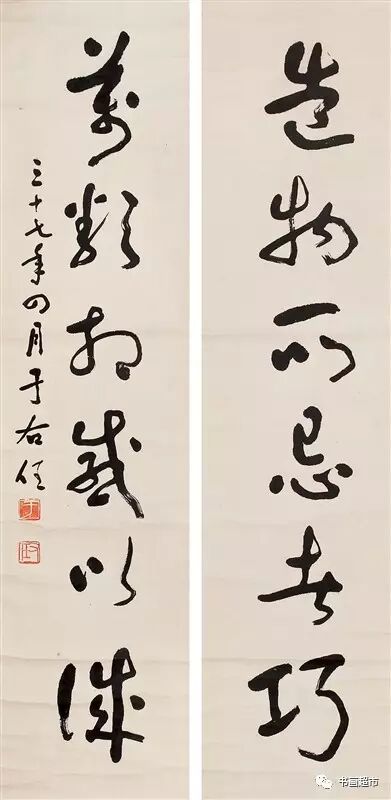 造物所忌者巧
萬類相感以誠
三十七年四月于右任
书画超市